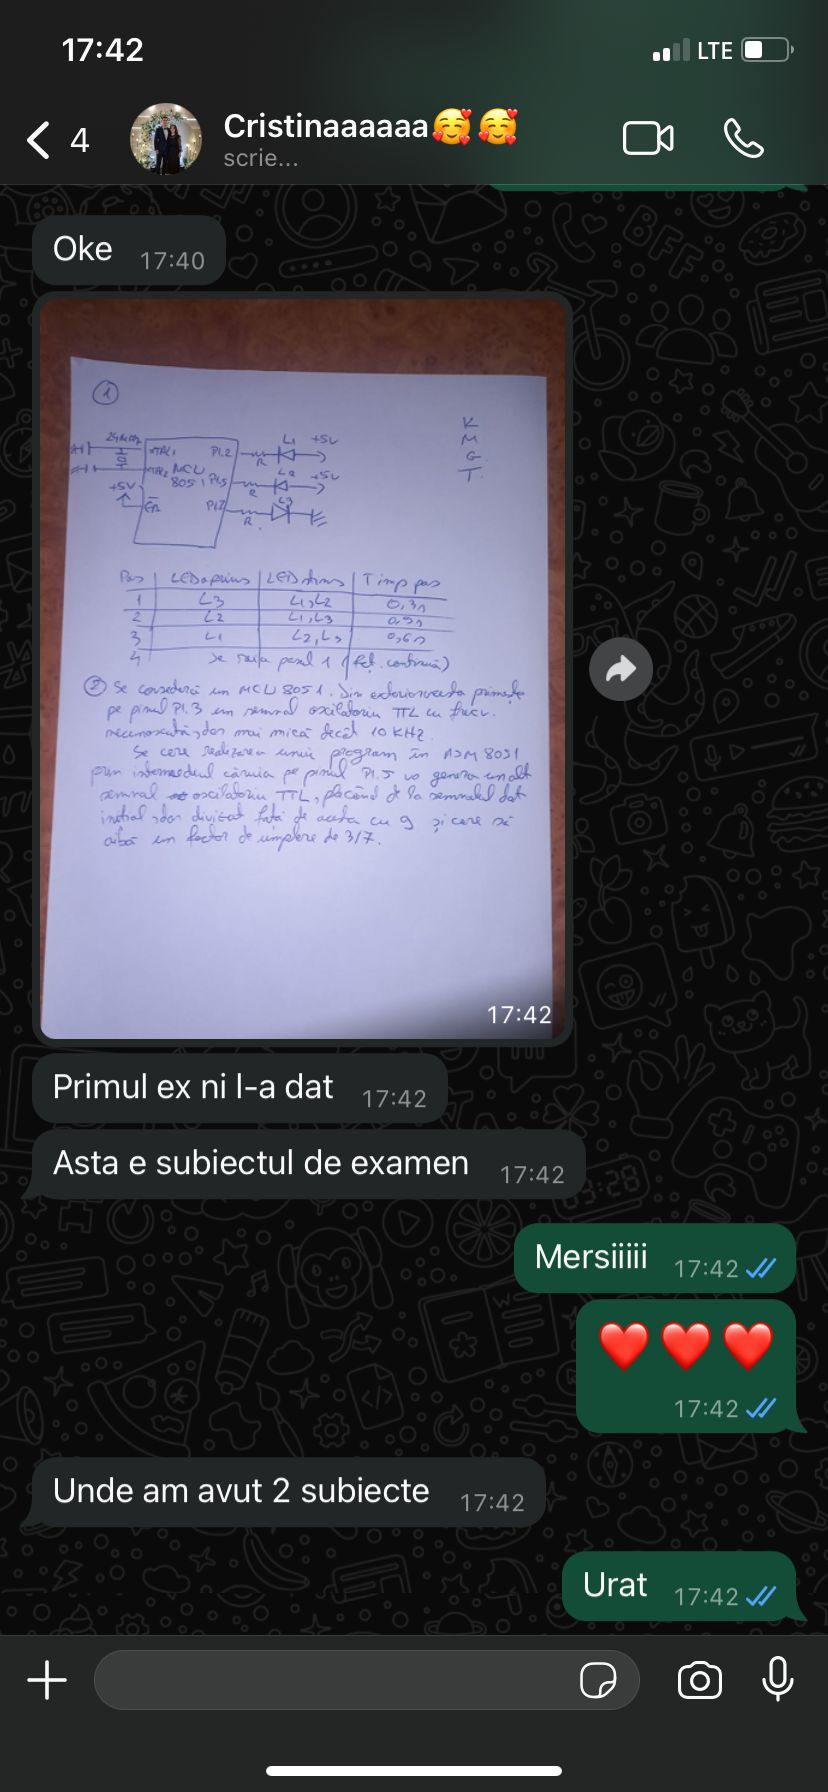 17:42
LTE
4
Cristinaaaaaa🥰🥰
scrie...
Oke 17:40
①
24MHz
XTAL1 P1.2 R L1 +5V
XTAL2 MCU
8051 P1.5 R L2 +5V
+5V
EA P1.7 R L3
K
M
G
T
Pas LED aprins LED stins Timp pas
1 L3 L1,L2 0,3s
2 L2 L1,L3
3 L1 L2,L3 0,6s
4 Se reia pasul 1 (fct. continuă)
② Se consideră un MCU 8051. Din exterior acesta primește
pe pinul P1.3 un semnal oscilatoriu TTL cu frecv.
necunoscută, dar mai mică decât 10 KHz.
Se cere realizarea unui program în ASM 8051
prin intermediul căruia pe pinul P1.5 va genera un alt
semnal oscilatoriu TTL, plecând de la semnalul dat
inițial, dar divizat față de acesta cu 9 și care să
aibă un factor de umplere de 3/7.
17:42
Primul ex ni l-a dat 17:42
Asta e subiectul de examen 17:42
Mersiiiii 17:42
❤️❤️❤️
17:42
Unde am avut 2 subiecte 17:42
Urat 17:42